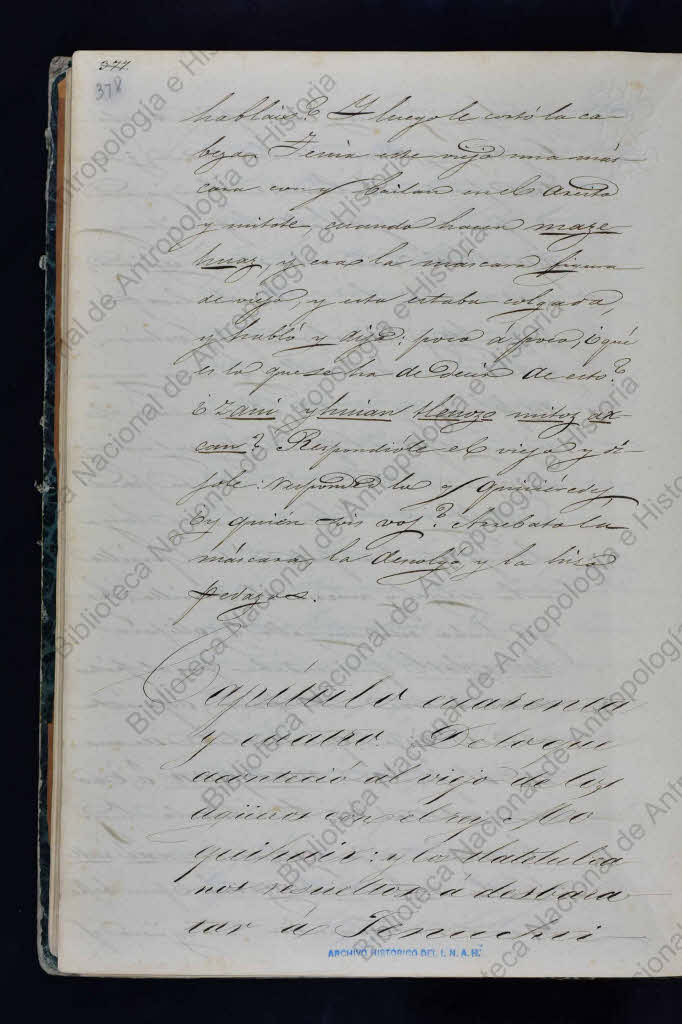 377.
378
hablais? Y luego le cortó la ca-
beza. Tenia este viejo una más
cara con q bailan en el areito
y mitote, cuando hacen maze
huaz, y era la máscara figura
de viejo, y esta estaba colgada,
y habló y dijo: poco á poco, ¿qué
es lo que se ha de decir de esto?
¿Zani yhuian
mitoz ax-
can? Respondióle el viejo y dí-
jole: responded lo q quisiéredes
¿y quién sois vos? Arrebató la
máscara, la descolgó y la hizo
pedazos.
Capítulo cuarenta
y cuatro. De lo que
aconteció al viejo de los
agüeros con el rey Mo
quihuix: y los tlatelulca
nos resueltos á desbara
tar á Tenuchti
ARCHIVO HISTORICO DEL I. N. A. H.
Biblioteca Nacional de Antropología e Historia